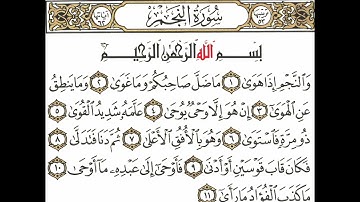 ترتيبها ٥٣ سُورَةُ النَّجْمِ آياتها ٦٢
بِسْمِ اللَّهِ الرَّحْمَٰنِ الرَّحِيمِ
وَالنَّجْمِ إِذَا هَوَىٰ ١ مَا ضَلَّ صَاحِبُكُمْ وَمَا غَوَىٰ ٢ وَمَا يَنطِقُ
عَنِ الْهَوَىٰ ٣ إِنْ هُوَ إِلَّا وَحْيٌ يُوحَىٰ ٤ عَلَّمَهُ شَدِيدُ الْقُوَىٰ ٥
ذُو مِرَّةٍ فَاسْتَوَىٰ ٦ وَهُوَ بِالْأُفُقِ الْأَعْلَىٰ ٧ ثُمَّ دَنَا فَتَدَلَّىٰ ٨
فَكَانَ قَابَ قَوْسَيْنِ أَوْ أَدْنَىٰ ٩ فَأَوْحَىٰ إِلَىٰ عَبْدِهِ مَا أَوْحَىٰ ١٠
مَا كَذَبَ الْفُؤَادُ مَا رَأَىٰ ١١